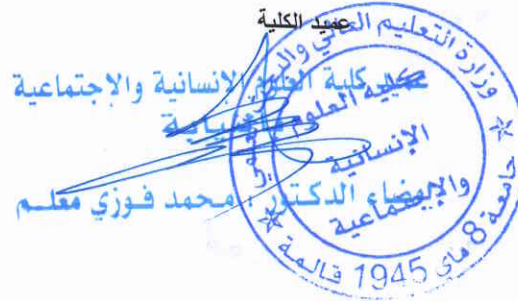 عميد الكلية
عميد كلية العلوم الإنسانية والاجتماعية
بالنيابة
إمضاء الدكتور: محمد فوزي معلم
وزارة التعليم العالي والبحث العلمي
كلية العلوم
الإنسانية
والاجتماعية
جامعة 8 ماي 1945 قالمة